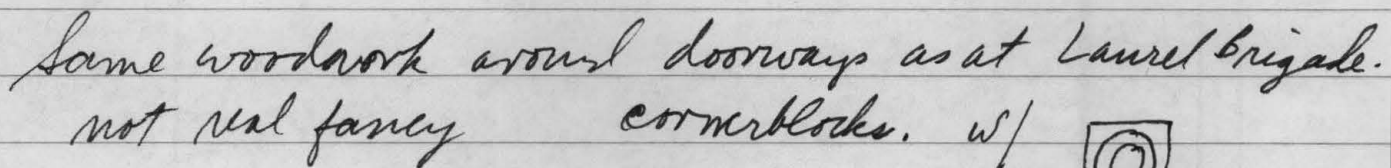 Same woodwork around doorways as at Laurel Brigade.
not real fancy cornerblocks. w/